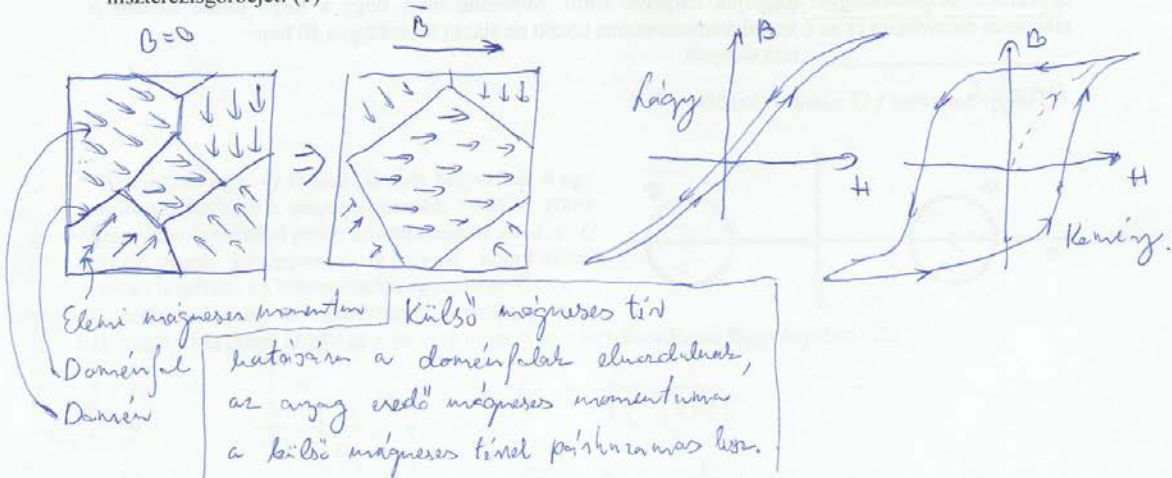 hiszterézisgörbéjét! (1)
B=0
B
⇒
Lágy
B
H
B
H
Kemény.
Elemi mágneses momentum
Doménfal
Domén
Külső mágneses tér
hatására a doménfalak elmozdulnak,
az anyag eredő mágneses momentuma
a külső mágneses térrel párhuzamos lesz.